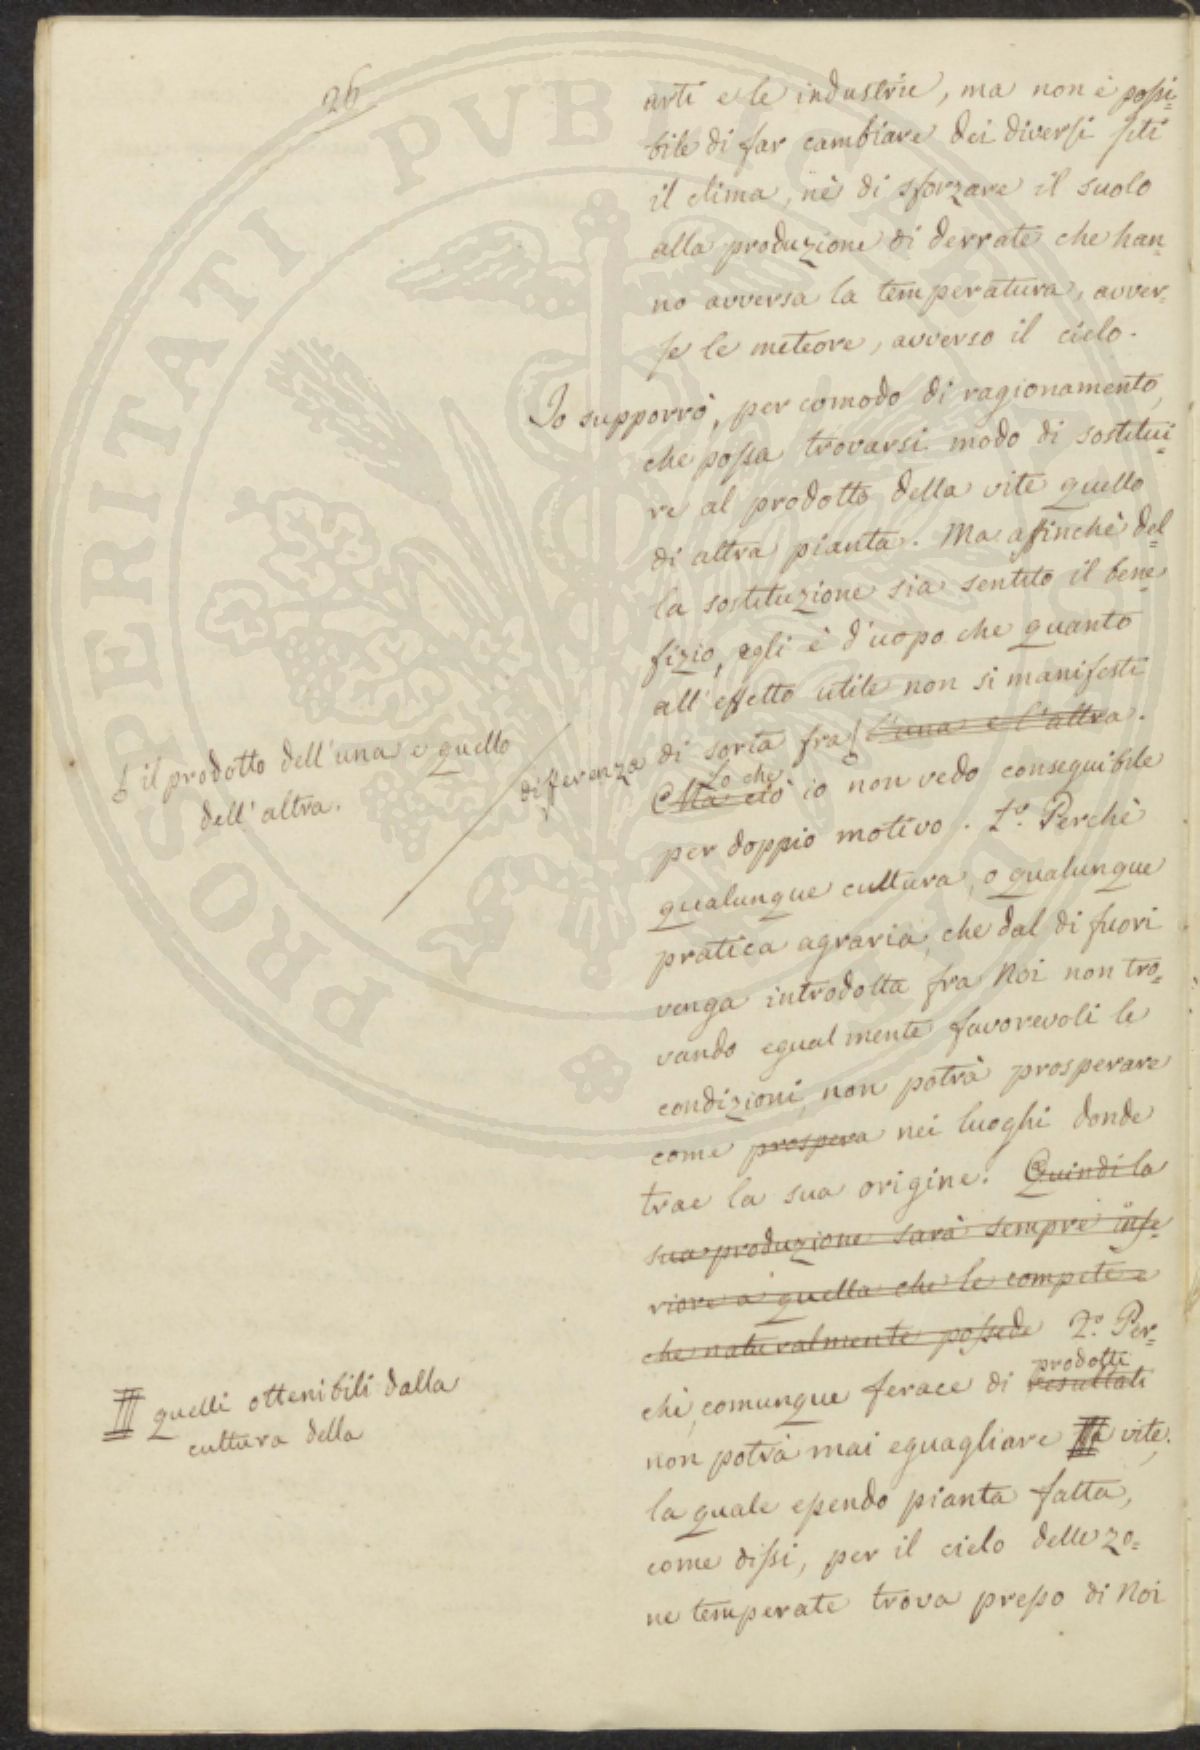 26
arti e le industrie, ma non è possi=
bile di far cambiare dei diversi siti
il clima, nè di sforzare il suolo
alla produzione di derrate che han=
no avversa la temperatura, avver=
se le meteore, avverso il cielo.
Io supporrò, per comodo di ragionamento,
che possa trovarsi modo di sostitui=
re al prodotto della vite quello
di altra pianta. Ma affinchè del=
la sostituzione sia sentito il bene=
fizio, egli è d'uopo che quanto
all'effetto utile non si manifesti
differenza di sorta fra l'una e l'altra.
il prodotto dell'una e quello
dell'altra.
Lo che
Ma ciò io non vedo conseguibile
per doppio motivo. 1º. Perchè
qualunque cultura, o qualunque
pratica agraria, che dal di fuori
venga introdotta fra Noi non tro=
vando egualmente favorevoli le
condizioni, non potrà prosperare
come prospera nei luoghi donde
trae la sua origine. Quindi la
sua produzione sarà sempre infe=
riore a quella che le compete e
che naturalmente possede 2º. Per=
prodotti
chè, comunque ferace di resultati
non potrà mai eguagliare la vite,
quelli ottenibili dalla
cultura della
la quale essendo pianta fatta,
come dissi, per il cielo delle zo=
ne temperate trova presso di Noi
PROSPERITATI PVBLICAE